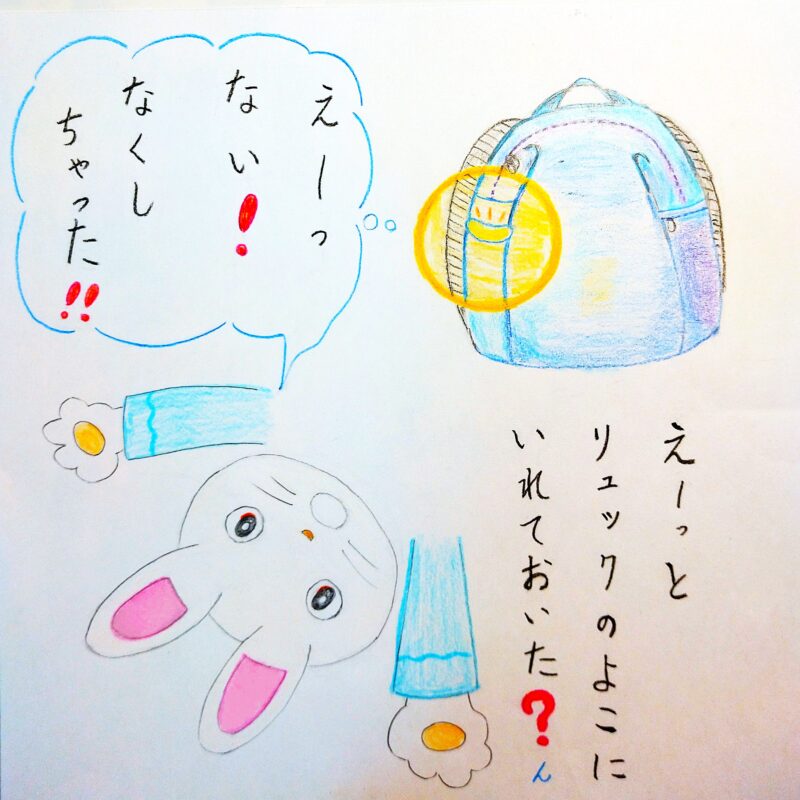 えーっと
リュックのよこに
いれておいた?
ん
えーっ
ない!
なくし
ちゃった!!